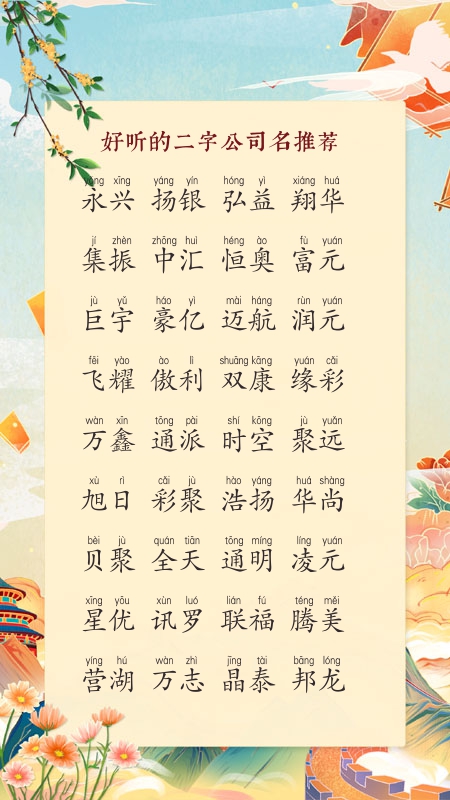 好听的二字公司名推荐
yǒng xīng yáng yín hóng yì xiáng huá
永兴 扬银 弘益 翔华
jí zhèn zhōng huì héng ào fù yuán
集振 中汇 恒奥 富元
jù yǔ háo yì mài háng rùn yuán
巨宇 豪亿 迈航 润元
fēi yào ào lì shuāng kāng yuán cǎi
飞耀 傲利 双康 缘彩
wàn xīn tōng pài shí kōng jù yuǎn
万鑫 通派 时空 聚远
xù rì cǎi jù hào yáng huá shàng
旭日 彩聚 浩扬 华尚
bèi jù quán tiān tōng míng líng yuán
贝聚 全天 通明 凌元
xīng yōu xùn luó lián fú téng měi
星优 讯罗 联福 腾美
yíng hú wàn zhì jīng tài bāng lóng
营湖 万志 晶泰 邦龙